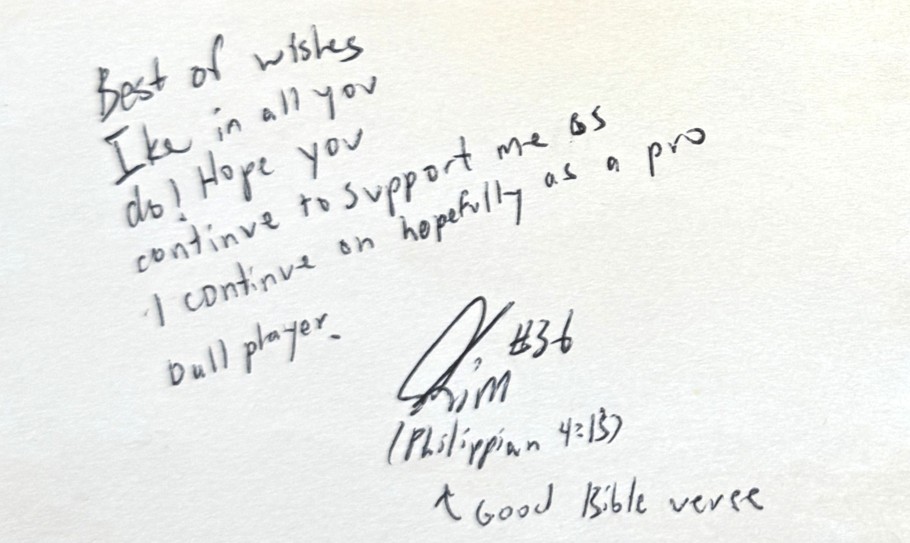 Best of wishes
Ike in all you
do! Hope you
continue to support me as
I continue on hopefully as a pro
ball player.
#36
Kim
(Philippian 4:13)
↑ Good Bible verse